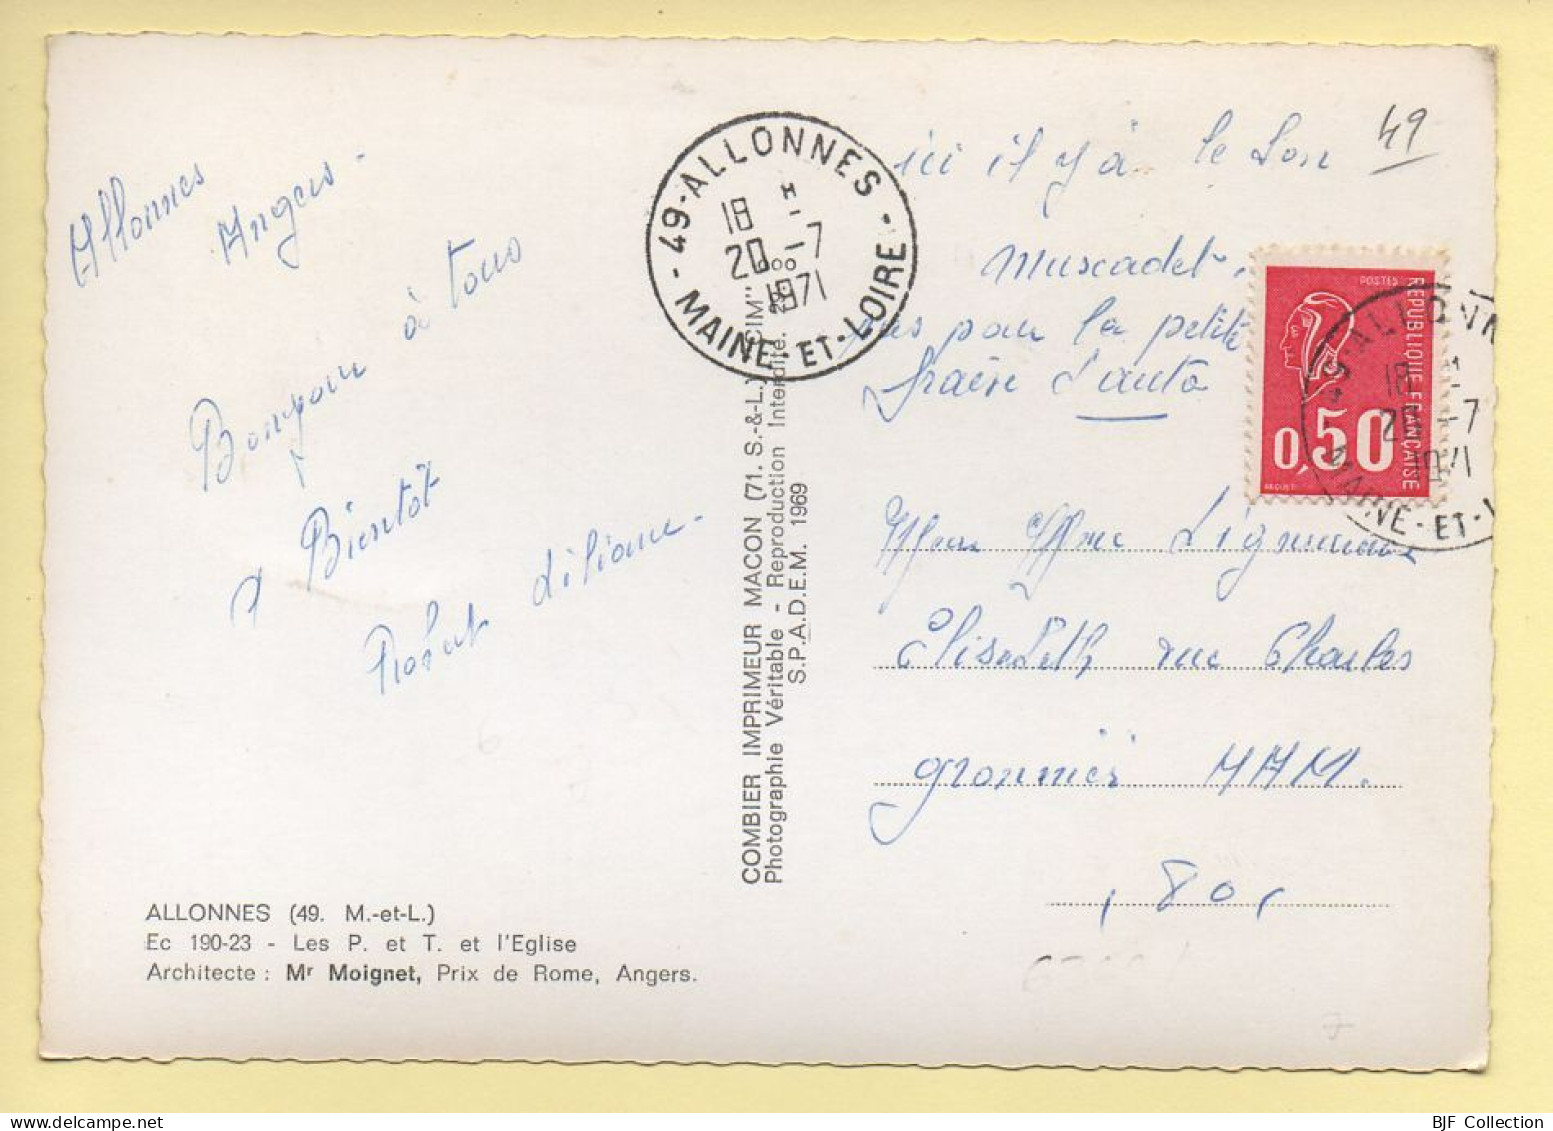 Allonnes
Angers -
Bonjour à tous
a Bientôt
Robert Liliane -
ALLONNES (49. M.-et-L.)
Ec 190-23 - Les P. et T. et l'Eglise
Architecte : Mr Moignet, Prix de Rome, Angers.
COMBIER IMPRIMEUR MACON (71. S.-&-L.) "CIM"
Photographie Véritable - Reproduction Interdite.
S.P.A.D.E.M. 1969
49-ALLONNES
18 H -
20 -7
1971
MAINE-ET-LOIRE
49
ici il y à le bon
Muscadet.
pas pour la petite
d'auto
POSTES
REPUBLIQUE FRANÇAISE
0,50
ALLONN
18 H
20 -7
1971
MAINE-ET-L
Elisabeth rue Charles
80
BJF Collection